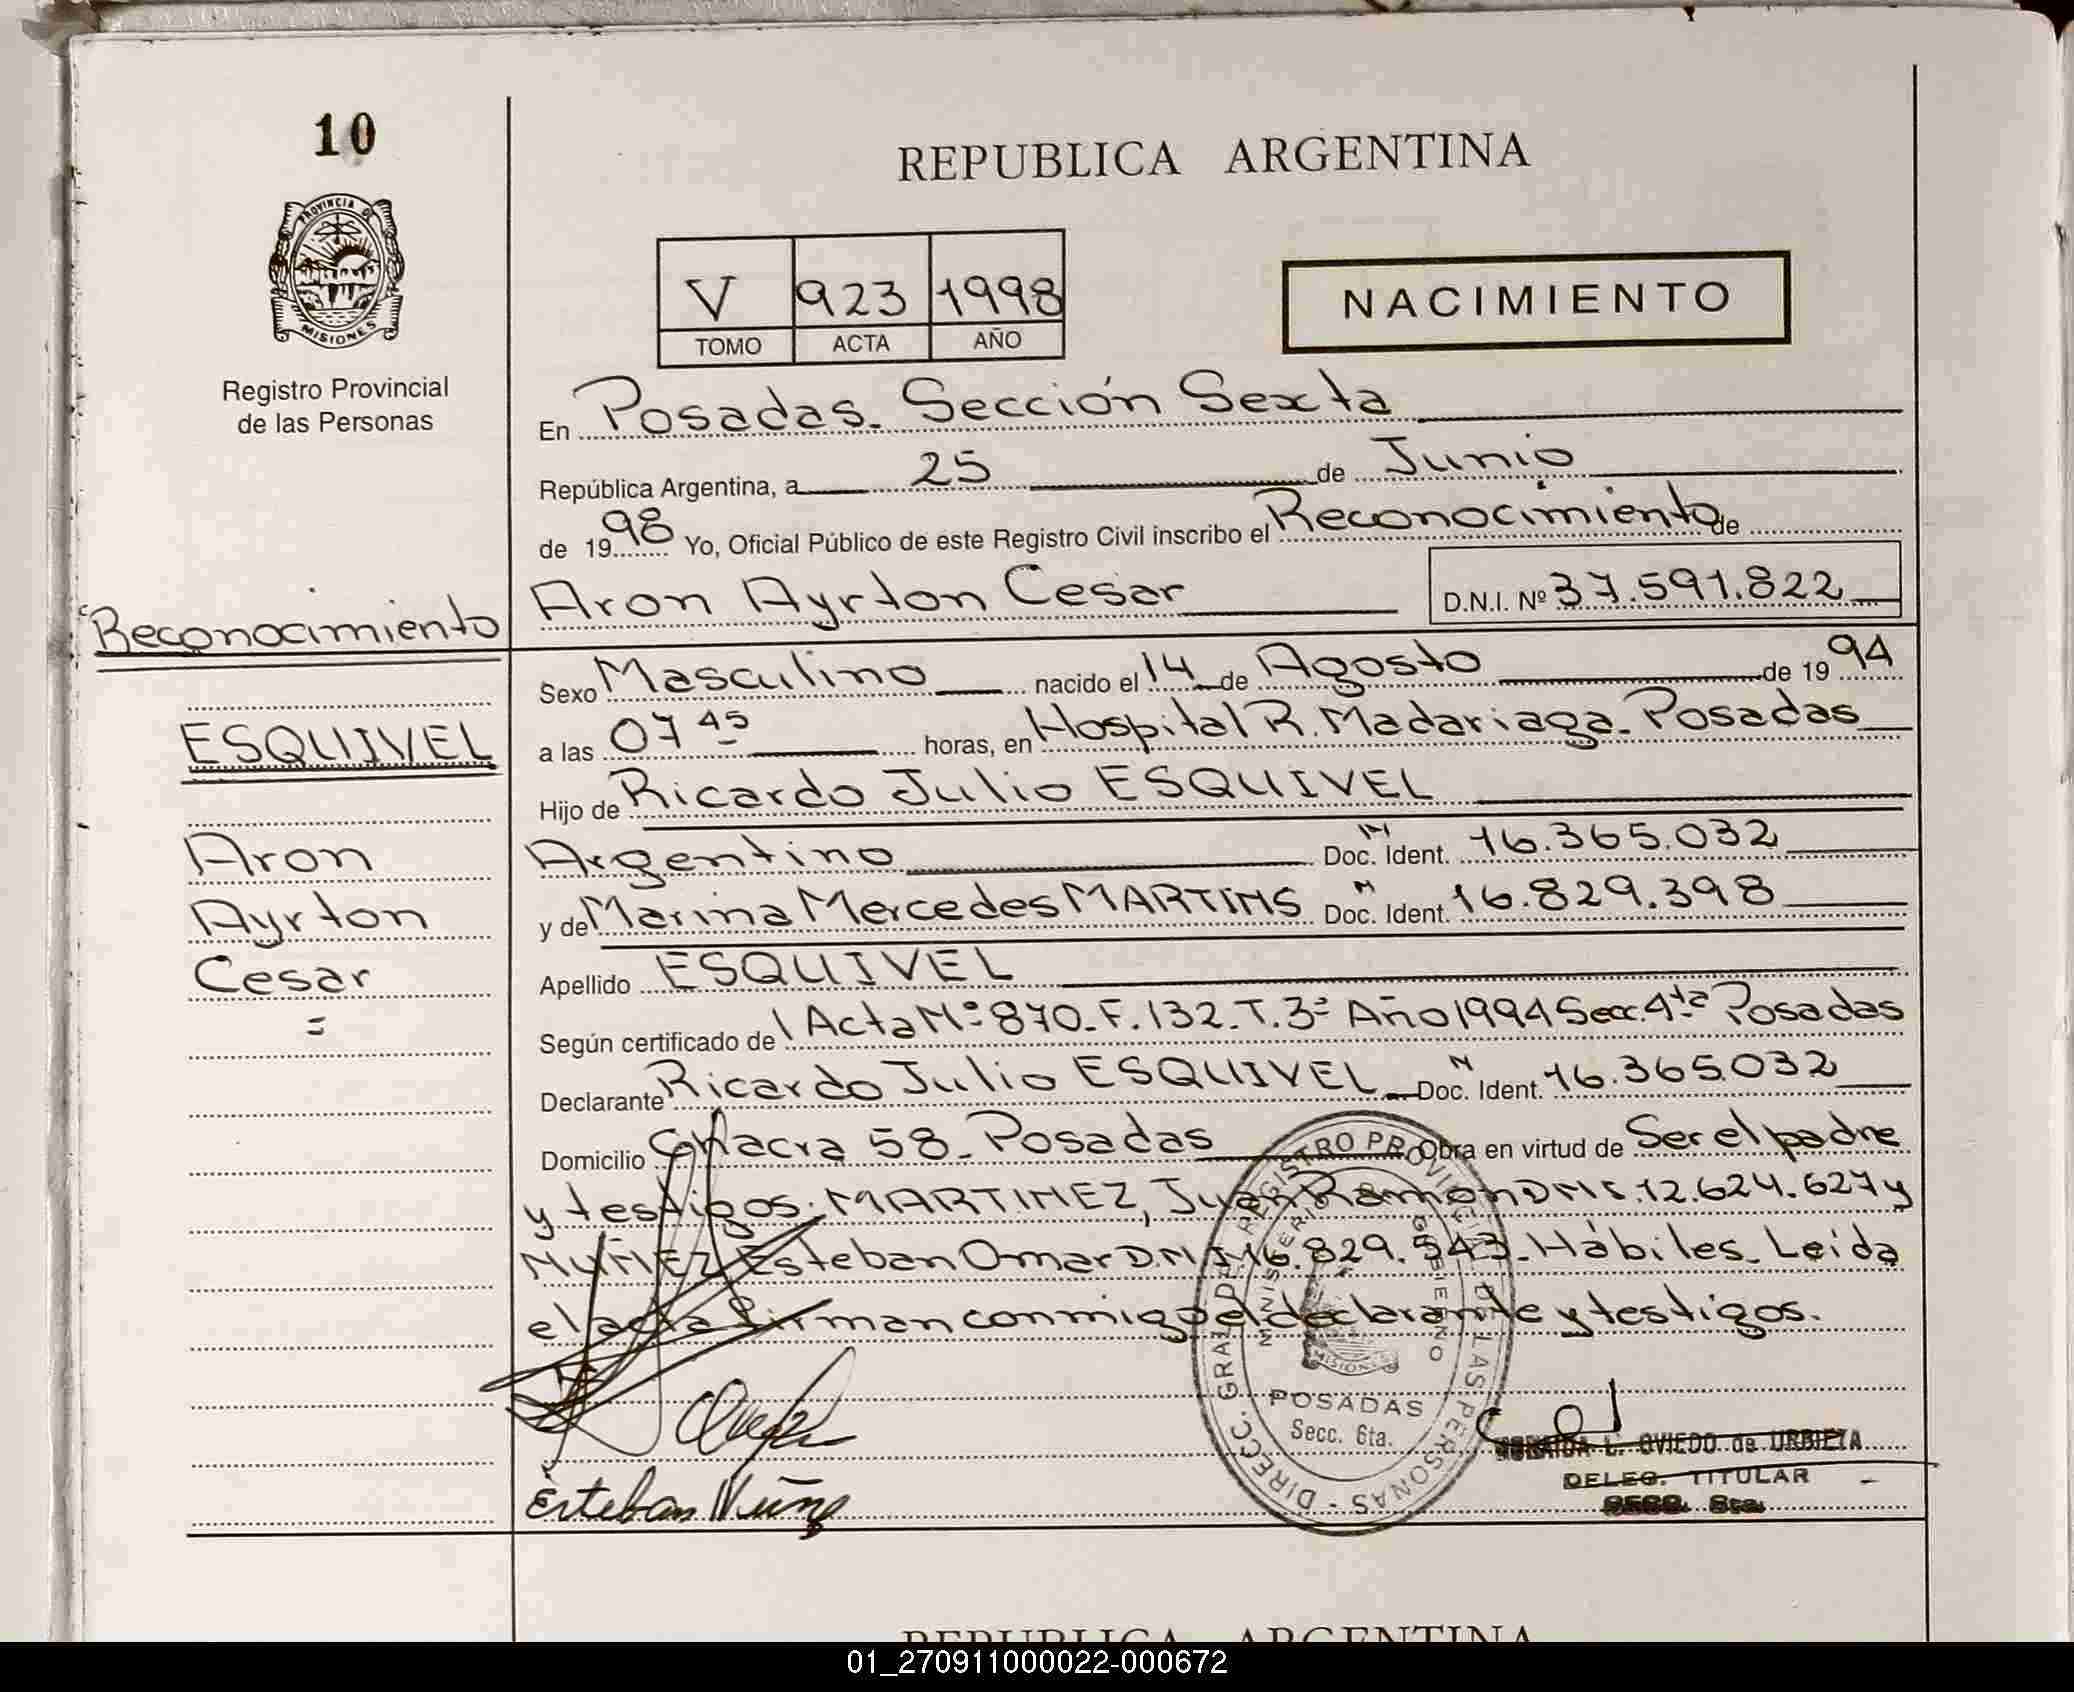 10
PROVINCIA DE
MISIONES
Registro Provincial
de las Personas
REPUBLICA ARGENTINA
V 923 1998
TOMO ACTA AÑO
NACIMIENTO
En Posadas. Sección Sexta
República Argentina, a 25 de Junio
de 1998 Yo, Oficial Público de este Registro Civil inscribo el Reconocimiento de
Aron Ayrton Cesar D.N.I. Nº 37.591.822
Reconocimiento
Sexo Masculino nacido el 14 de Agosto de 1994
ESQUIVEL
a las 07 45 horas, en Hospital R. Madariaga. Posadas
Hijo de Ricardo Julio ESQUIVEL
Aron
Argentino M Doc. Ident. 16.365.032
Ayrton
y de Marina Mercedes MARTINS M Doc. Ident. 16.829.398
Cesar
Apellido ESQUIVEL
=
Según certificado de 1 Acta Nº 870. F. 132. T. 3º Año 1994 Secc. 4ta Posadas
Declarante Ricardo Julio ESQUIVEL N Doc. Ident. 16.365032
Domicilio Chacra 58. Posadas Obra en virtud de Ser el padre
y testigos: MARTINEZ, Juan Ramon DMI.12.624.627 y
MUÑEZ Esteban Omar D.M I 16.829.543. Hábiles. Leida
el acta firman conmigo el declarante y testigos.
DIRECC. GRAL. DEL REGISTRO PROVINCIAL DE LAS PERSONAS -
MINISTERIO DE GOBIERNO
MISIONES
POSADAS
Secc. 6ta.
L. OVIEDO de URBIETA
DELEG. TITULAR
Esteban Nuñez
REPUBLICA ARGENTINA
01_270911000022-000672